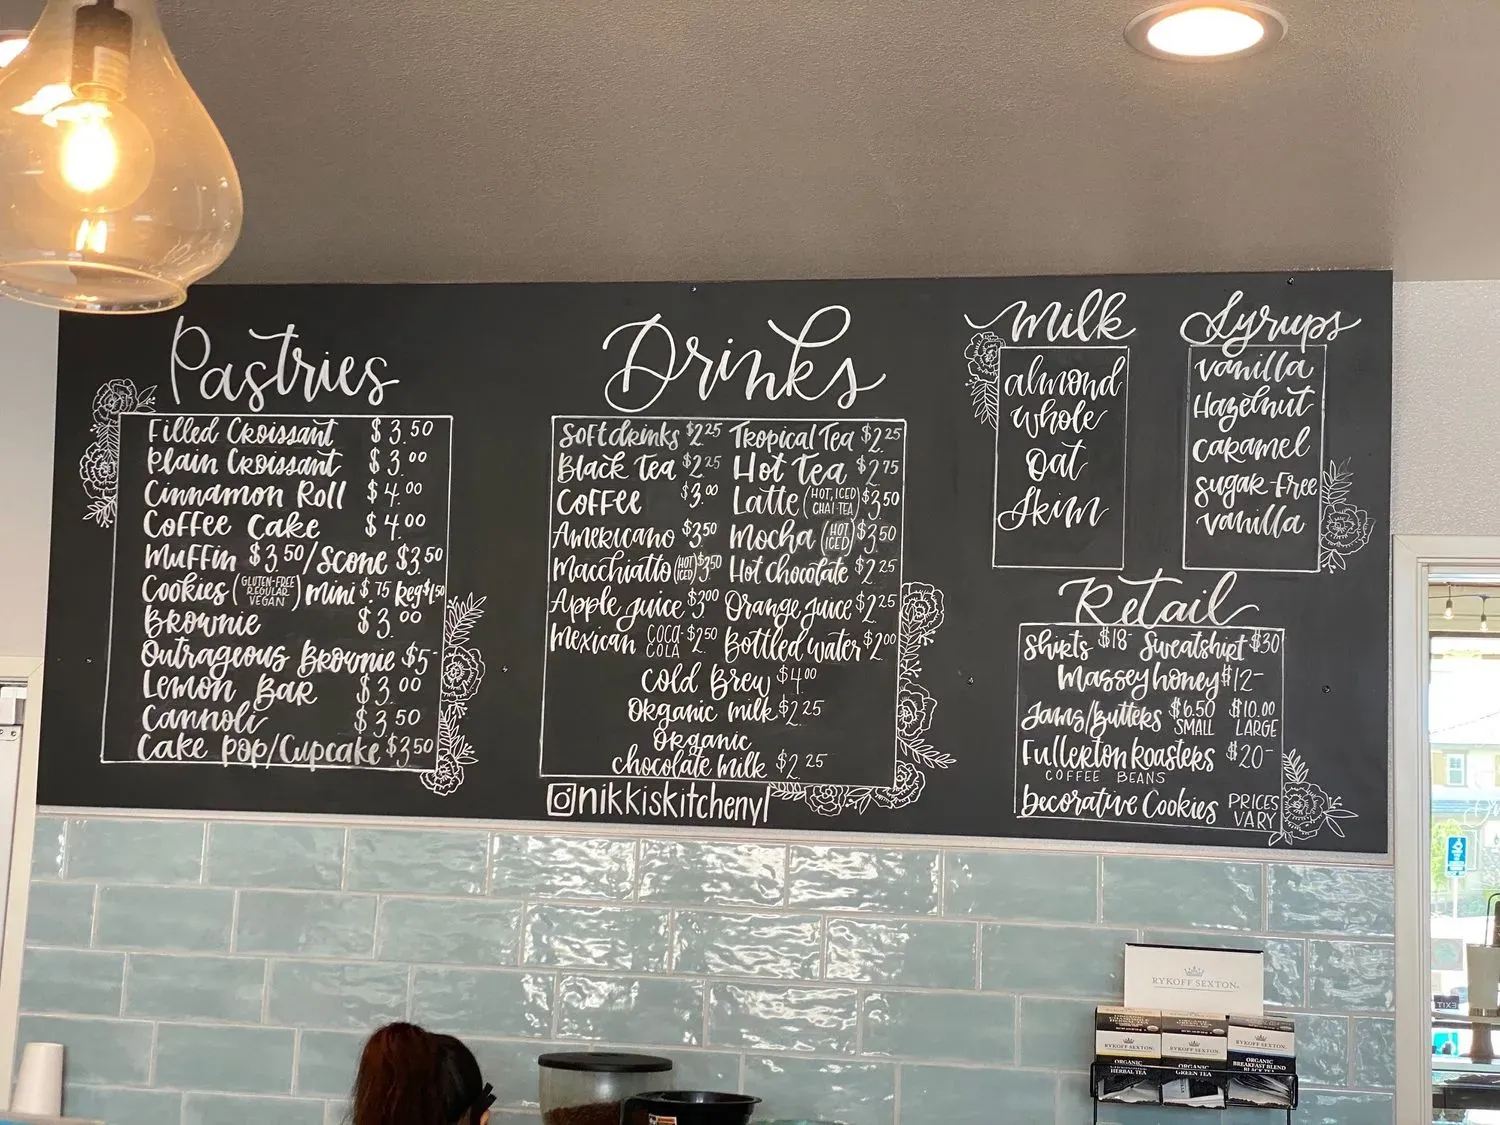 Pastries
Filled Croissant $3.50
Plain Croissant $3.00
Cinnamon Roll $4.00
Coffee Cake $4.00
Muffin $3.50/Scone $3.50
Cookies (GLUTEN-FREE REGULAR VEGAN) mini $.75 Reg $1.50
Brownie $3.00
Outrageous Brownie $5-
Lemon Bar $3.00
Cannoli $3.50
Cake pop/Cupcake $3.50
Drinks
Soft drinks $2.25 Tropical Tea $2.25
Black Tea $2.25 Hot Tea $2.75
Coffee $3.00 Latte (HOT, ICED CHAI-TEA) $3.50
Americano $3.50 Mocha (HOT ICED) $3.50
Macchiatto (HOT ICED) $3.50 Hot chocolate $2.25
Apple juice $3.00 Orange juice $2.25
Mexican COCA-COLA $2.50 Bottled water $2.00
Cold Brew $4.00
Organic milk $2.25
Organic
chocolate milk $2.25
nikkiskitchenyl
Milk
almond
whole
Oat
Skim
Syrups
vanilla
Hazelnut
caramel
sugar-Free
vanilla
Retail
Shirts $18- Sweatshirt $30
Massey honey $12-
Jams/Butters $6.50 SMALL $10.00 LARGE
Fullerton Roasters $20-
COFFEE BEANS
Decorative Cookies PRICES VARY
RYKOFF SEXTON
RYKOFF SEXTON RYKOFF SEXTON RYKOFF SEXTON
ORGANIC HERBAL TEA
ORGANIC GREEN TEA
ORGANIC BREAKFAST BLEND BLACK TEA
EXIT